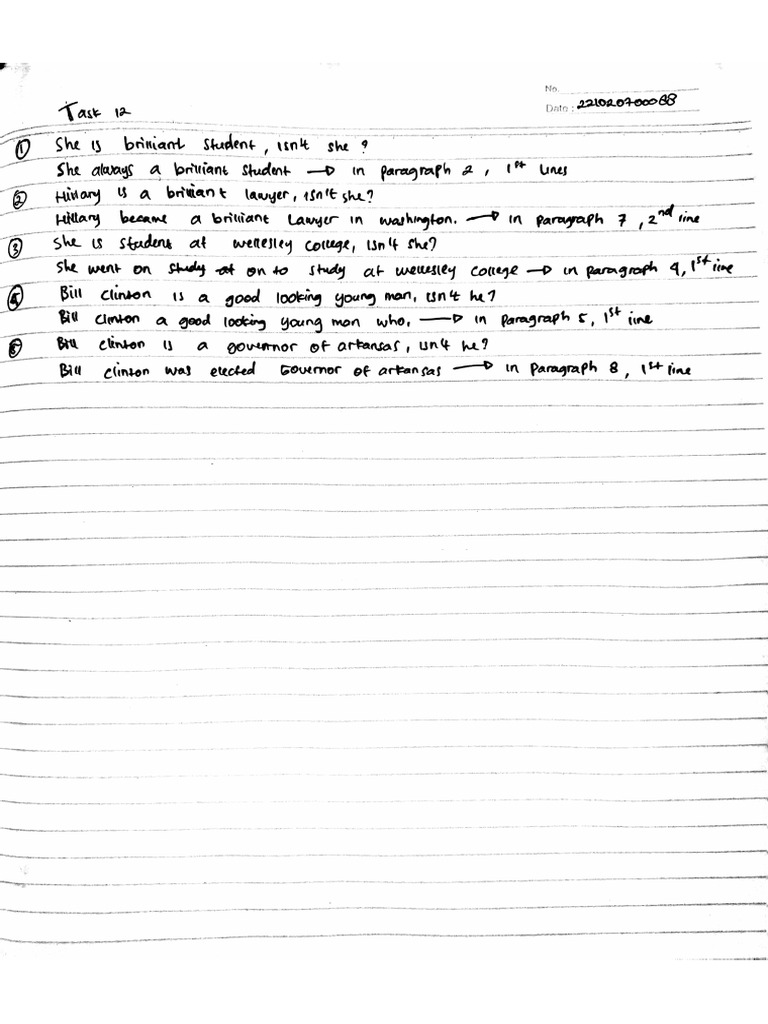 No.
Date : 221020700088
Task 12
① She is brilliant student, isn't she ?
She always a brilliant student → in paragraph 2, 1st lines
② Hillary is a brilliant lawyer, isn't she?
Hillary became a brilliant Lawyer in washington. → in paragraph 7, 2nd line
③ She is student at wellesley college, isn't she?
She went on study at on to study at wellesley college → in paragraph 4, 1st line
④ Bill clinton is a good looking young man, isn't he?
Bill clinton a good looking young man who. → in paragraph 5, 1st line
⑤ Bill clinton is a governor of arkansas, isn't he?
Bill clinton was elected Governor of arkansas → in paragraph 8, 1st line